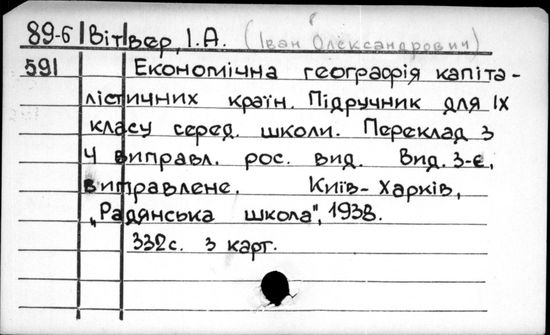 89-6 Вітвер, І.А. (Іван Олександрович)
591 Економічна географія капіта-
лістичних країн. Підручник для ІХ
класу серед. школи. Переклад з
4 виправл. рос. вид. Вид. 3-є,
виправлене. Київ-Харків,
„Радянська школа", 1938.
332с. з карт.